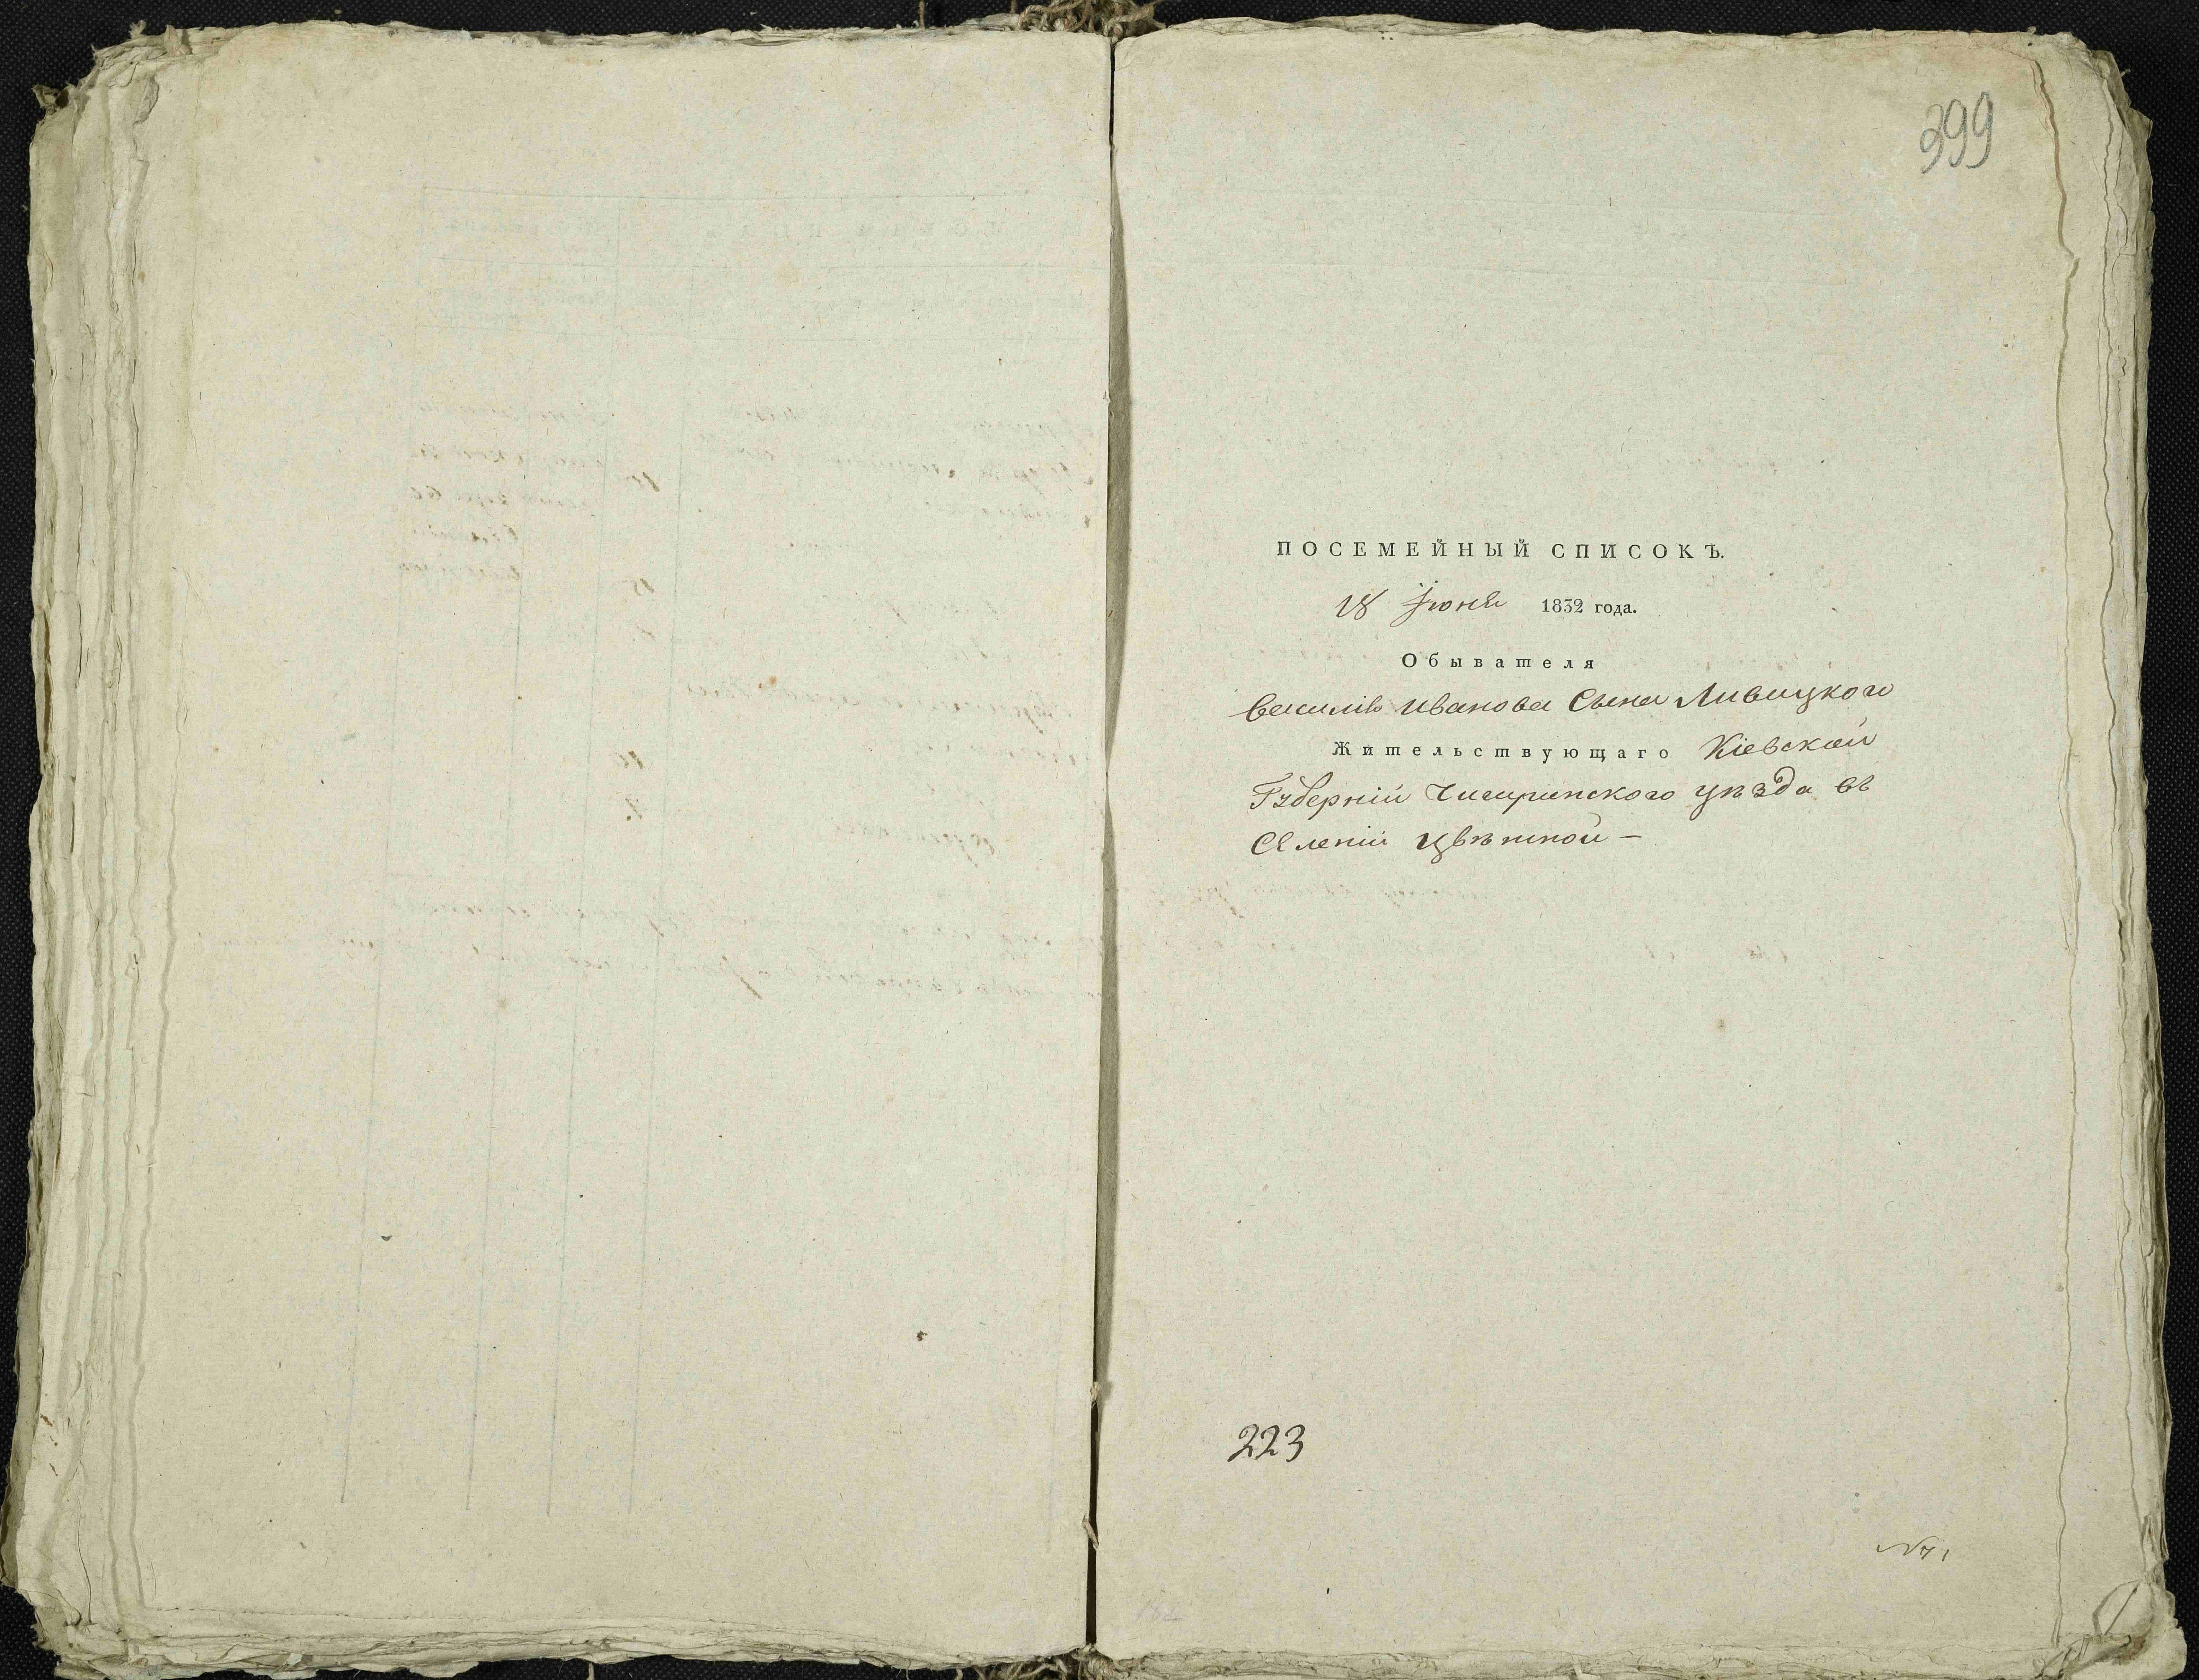 399
ПОСЕМЕЙНЫЙ СПИСОКЪ.
18 Іюня 1832 года.
Обывателя
Василія Иванова Сына Ливицкого
Жительствующаго Кіевской
Губерніи Чигиринского уѣзда въ
Селеніи Цвѣтной —
223
N 71